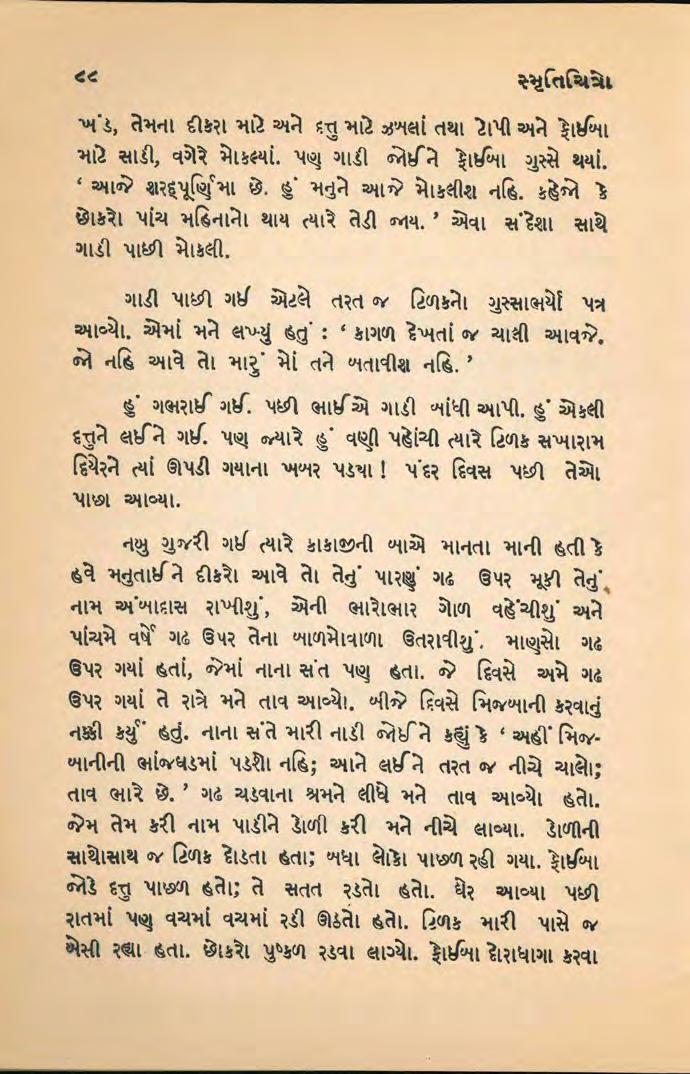 ૮૮ સ્મૃતિચિત્રો
ખંડ, તેમના દીકરા માટે અને દત્તુ માટે ઝબલાં તથા ટોપી અને ફોઈબા
માટે સાડી, વગેરે મોકલ્યાં. પણ ગાડી જોઈને ફોઈબા ગુસ્સે થયાં.
‘ આજે શરદ્‌પૂર્ણિમા છે. હું મનુને આજે મોકલીશ નહિ. કહેજો કે
છોકરો પાંચ મહિનાનો થાય ત્યારે તેડી જાય. ’ એવા સંદેશા સાથે
ગાડી પાછી મોકલી.
ગાડી પાછી ગઈ એટલે તરત જ ટિળકનો ગુસ્સાભર્યો પત્ર
આવ્યો. એમાં મને લખ્યું હતું : ‘ કાગળ દેખતાં જ ચાલી આવજે.
જો નહિ આવે તો મારું મોં તને બતાવીશ નહિ. ’
હું ગભરાઈ ગઈ. પછી ભાઈએ ગાડી બાંધી આપી. હું એકલી
દત્તુને લઈને ગઈ. પણ જ્યારે હું વણી પહોંચી ત્યારે ટિળક સખારામ
દિયેરને ત્યાં ઊપડી ગયાના ખબર પડયા ! પંદર દિવસ પછી તેઓ
પાછા આવ્યા.
નબુ ગુજરી ગઈ ત્યારે કાકાજીની બાએ માનતા માની હતી કે
હવે મનુતાઈને દીકરો આવે તો તેનું પારણું ગઢ ઉપર મૂકી તેનું
નામ અંબાદાસ રાખીશું, એની ભારોભાર ગોળ વહેંચીશું અને
પાંચમે વર્ષે ગઢ ઉપર તેના બાળમોવાળા ઉતરાવીશું. માણસો ગઢ
ઉપર ગયાં હતાં, જેમાં નાના સંત પણ હતા. જે દિવસે અમે ગઢ
ઉપર ગયાં તે રાત્રે મને તાવ આવ્યો. બીજે દિવસે મિજબાની કરવાનું
નક્કી કર્યું હતું. નાના સંતે મારી નાડી જોઈને કહ્યું કે ‘ અહીં મિજ-
બાનીની ભાંજઘડમાં પડશો નહિ; આને લઈને તરત જ નીચે ચાલો;
તાવ ભારે છે. ’ ગઢ ચડવાના શ્રમને લીધે મને તાવ આવ્યો હતો.
જેમ તેમ કરી નામ પાડીને ડોળી કરી મને નીચે લાવ્યા. ડોળીની
સાથોસાથ જ ટિળક દોડતા હતા; બધા લોકો પાછળ રહી ગયા. ફોઈબા
જોડે દત્તુ પાછળ હતો; તે સતત રડતો હતો. ઘેર આવ્યા પછી
રાતમાં પણ વચમાં વચમાં રડી ઊઠતો હતો. ટિળક મારી પાસે જ
બેસી રહ્યા હતા. છોકરો પુષ્કળ રડવા લાગ્યો. ફોઈબા દોરાધાગા કરવા